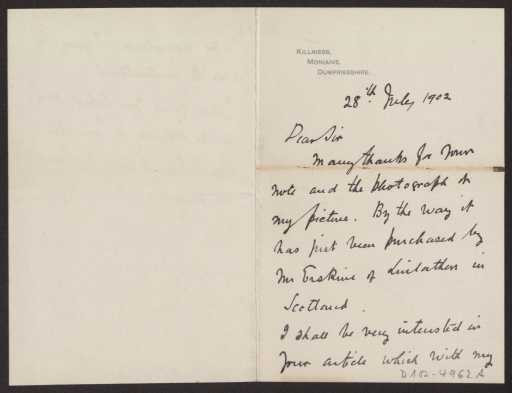 KILLNIESS,
MONIAIVE,
DUMFRIESSHIRE.
28th July 1902
Dear Sir
Many thanks for your
note and the photograph of
my picture. By the way it
has just been purchased by
Mr Erskine of Linlathen in
Scotland.
I shall be very interested in
your article which with my
D182-4962A